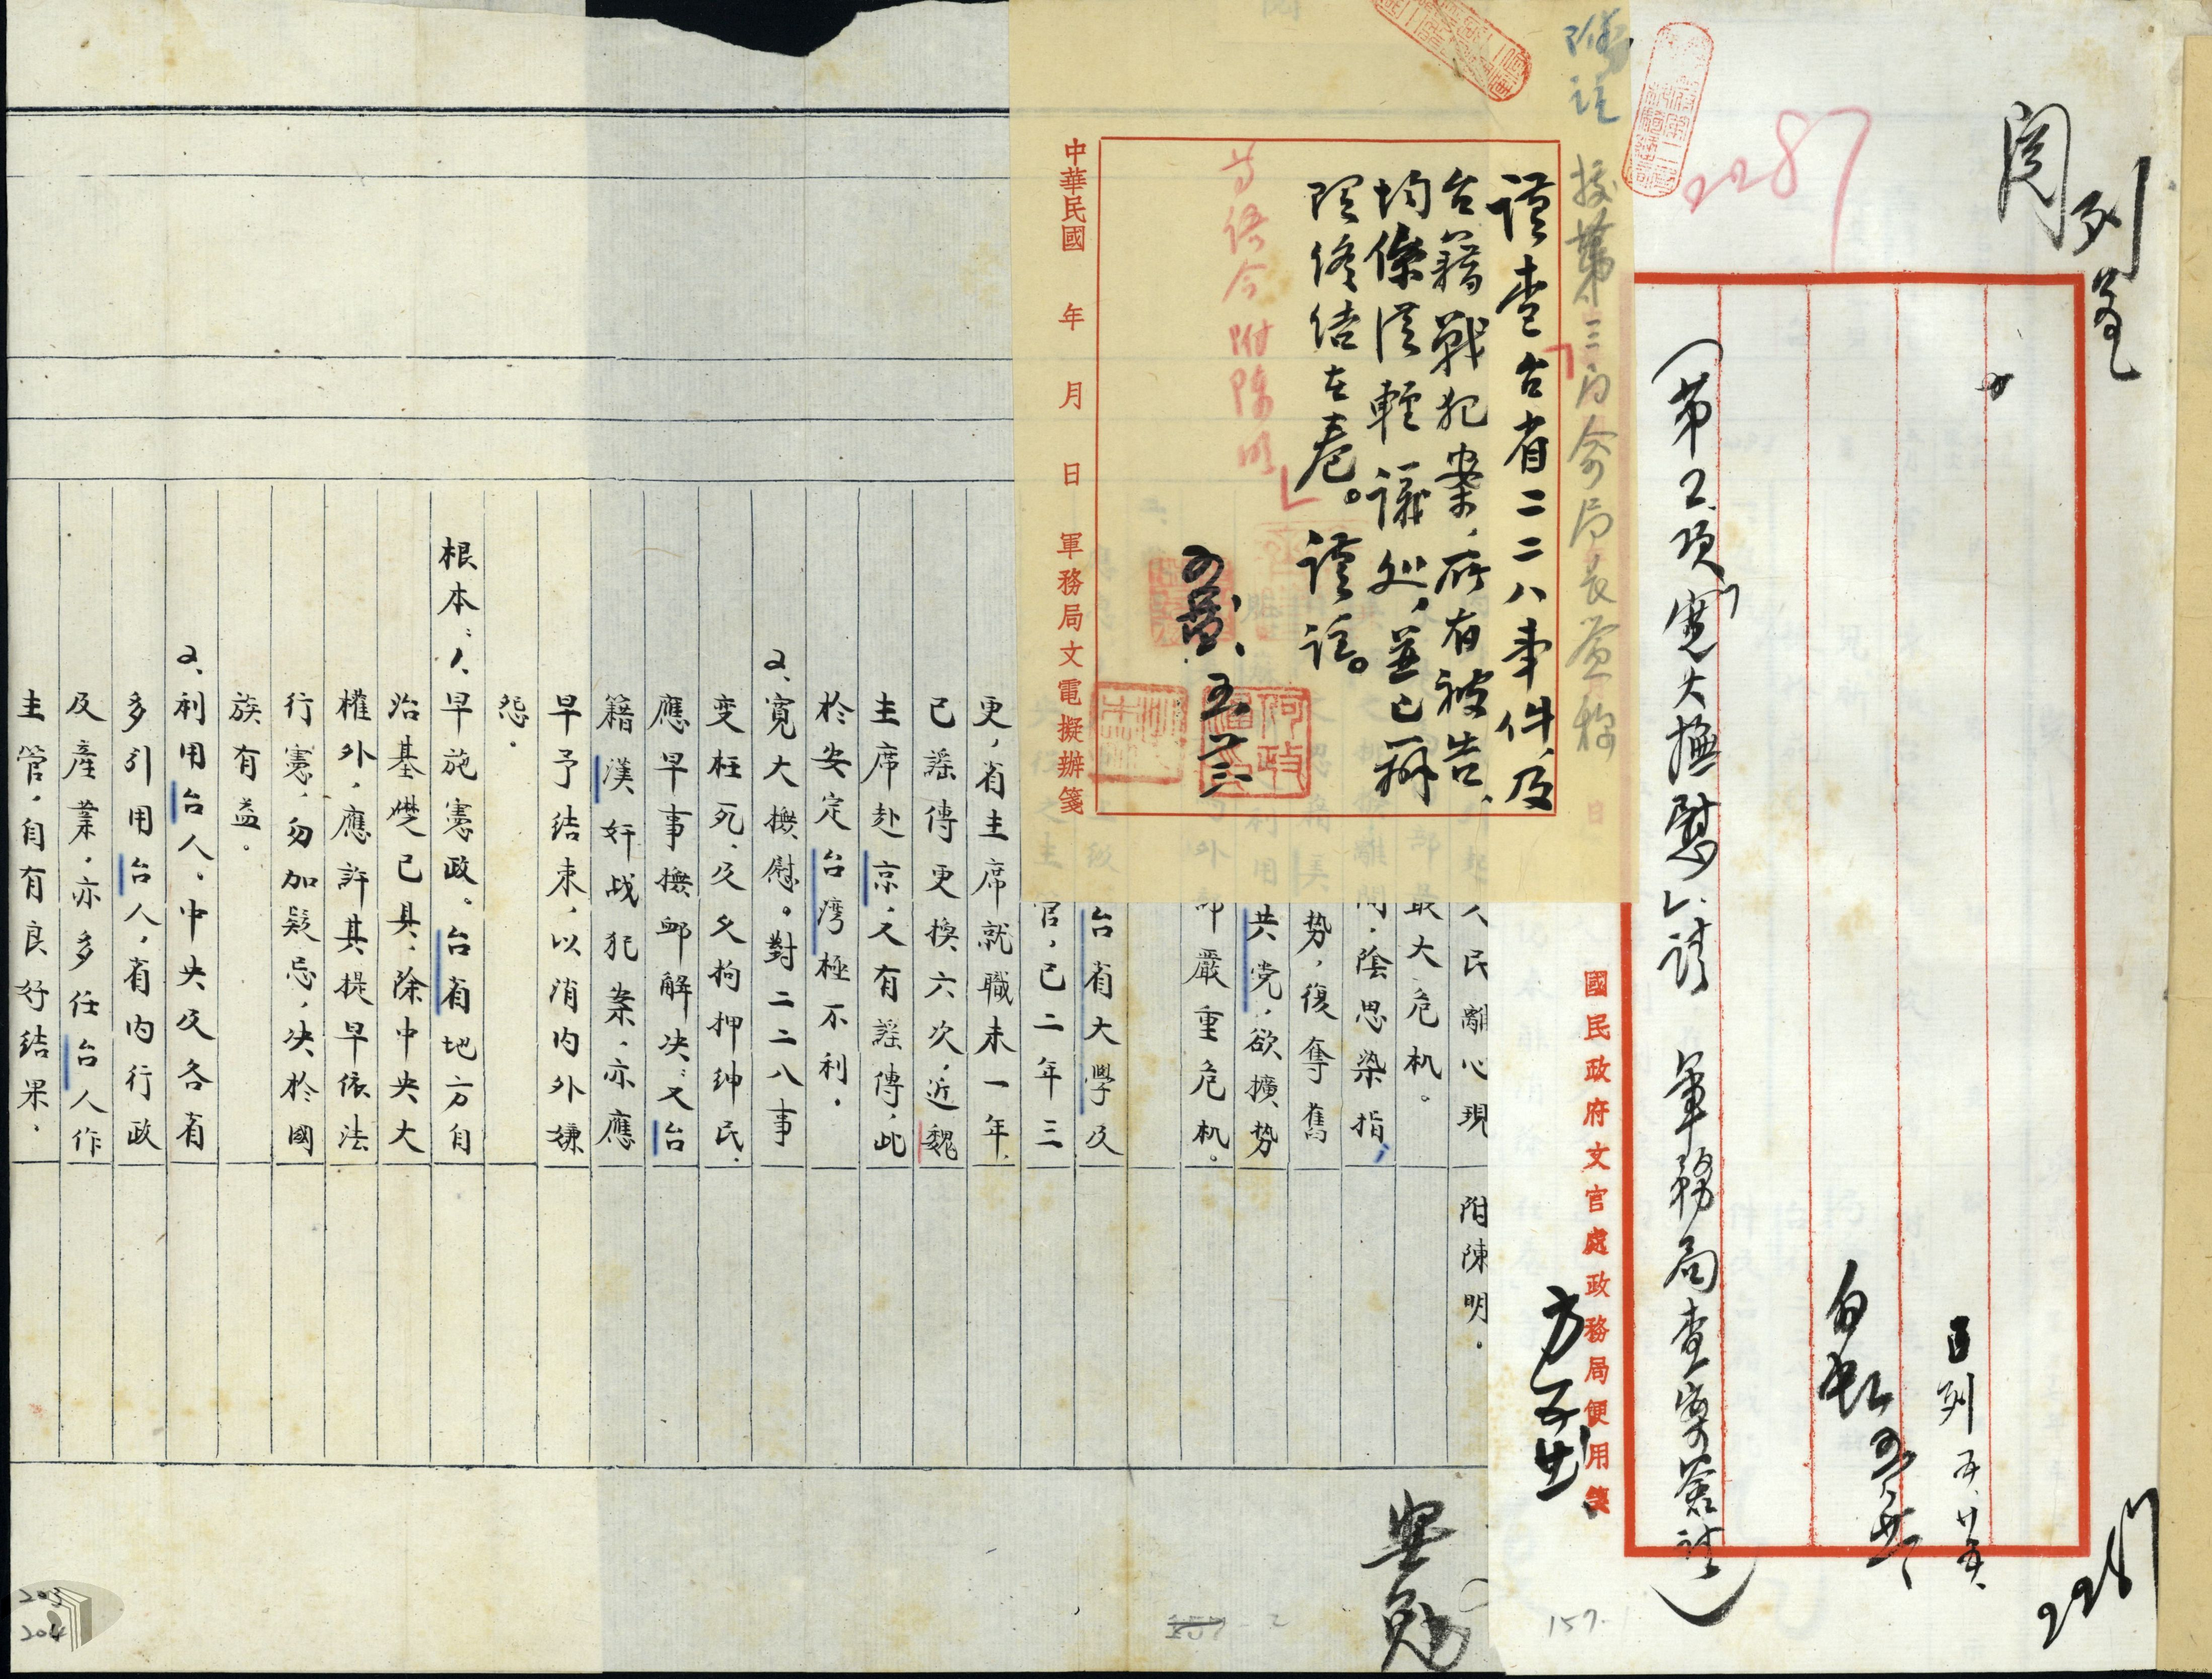 閱
列
2287
2287
(第2項「寬大撫慰」請 軍務局查案簽註)
列 五、廿五
國民政府文官處政務局便用箋
附註
按第三局俞局長簽稱
「謹查台省二二八事件、及
台籍戰犯案,所有被告、
均係從輕議處,並已辦
理終結在卷。謹註。
等語合附陳明」
中華民國 年 月 日 軍務局文電擬辦箋
人民離心現
部最大危机。
離間,陰思染指,
势,復奪舊
共党,欲擴势
外部嚴重危机。
附陳明。
台省大學及
官,已二年三
更,省主席就職未一年,
已謡傳更换六次,近魏
主席赴京,又有謡傳,此
於安定台灣極不利。
2、寬大撫慰。對二二八事
变枉死,及久拘押紳民,
應早事撫卹解决;又台
籍漢奸战犯案,亦應
早予结束,以消内外嫌
怨。
根本:1、早施憲政。台省地方自
治基礎已具,除中央大
權外,應許其提早依法
行憲,勿加疑忌,决於國
族有益。
2、利用台人。中央及各省
多引用台人,省内行政
及產業,亦多任台人作
主管,自有良好结果。
157-
203
204